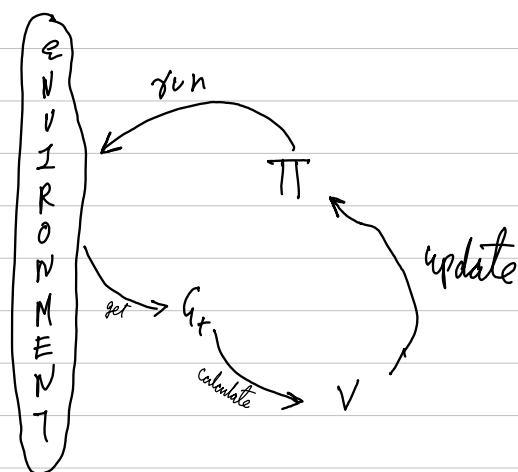 ENVIRONMENT
run
π
update
get
Gt
calculate
V